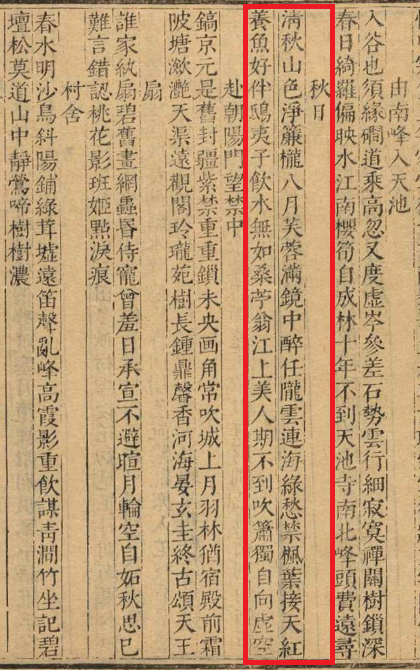 由南峰入天池
入谷也須緣磵道乘高忽又度虛岑參差石勢雲行細寂寞禪關樹鎖深
春日綺羅偏映水江南櫻筍自成林十年不到天池寺南北峰頭費遠尋
秋日
清秋山色淨簾櫳八月芙蓉滿鏡中醉任隴雲連海綠愁禁楓葉接天紅
養魚好伴鴟夷子飲水無如桑苧翁江上美人期不到吹簫獨自向虛空
赴朝陽門望禁中
鎬京元是舊封疆紫禁重重鎖未央画角常吹城上月羽林猶宿殿前霜
陂塘瀲灔天渠遠觀閣玲瓏苑樹長鍾鼎馨香河海晏玄圭終古頌天王
扇
誰家紈扇碧舊畫網蟲昏侍寵曾羞日承宣不避暄月輪空自妬秋思已
難言錯認桃花影班姬點淚痕
村舍
春水明沙鳥斜陽鋪綠茸墟遠笛聲亂峰高霞影重飲謀青澗竹坐記碧
壇松莫道山中靜鶯啼樹樹濃